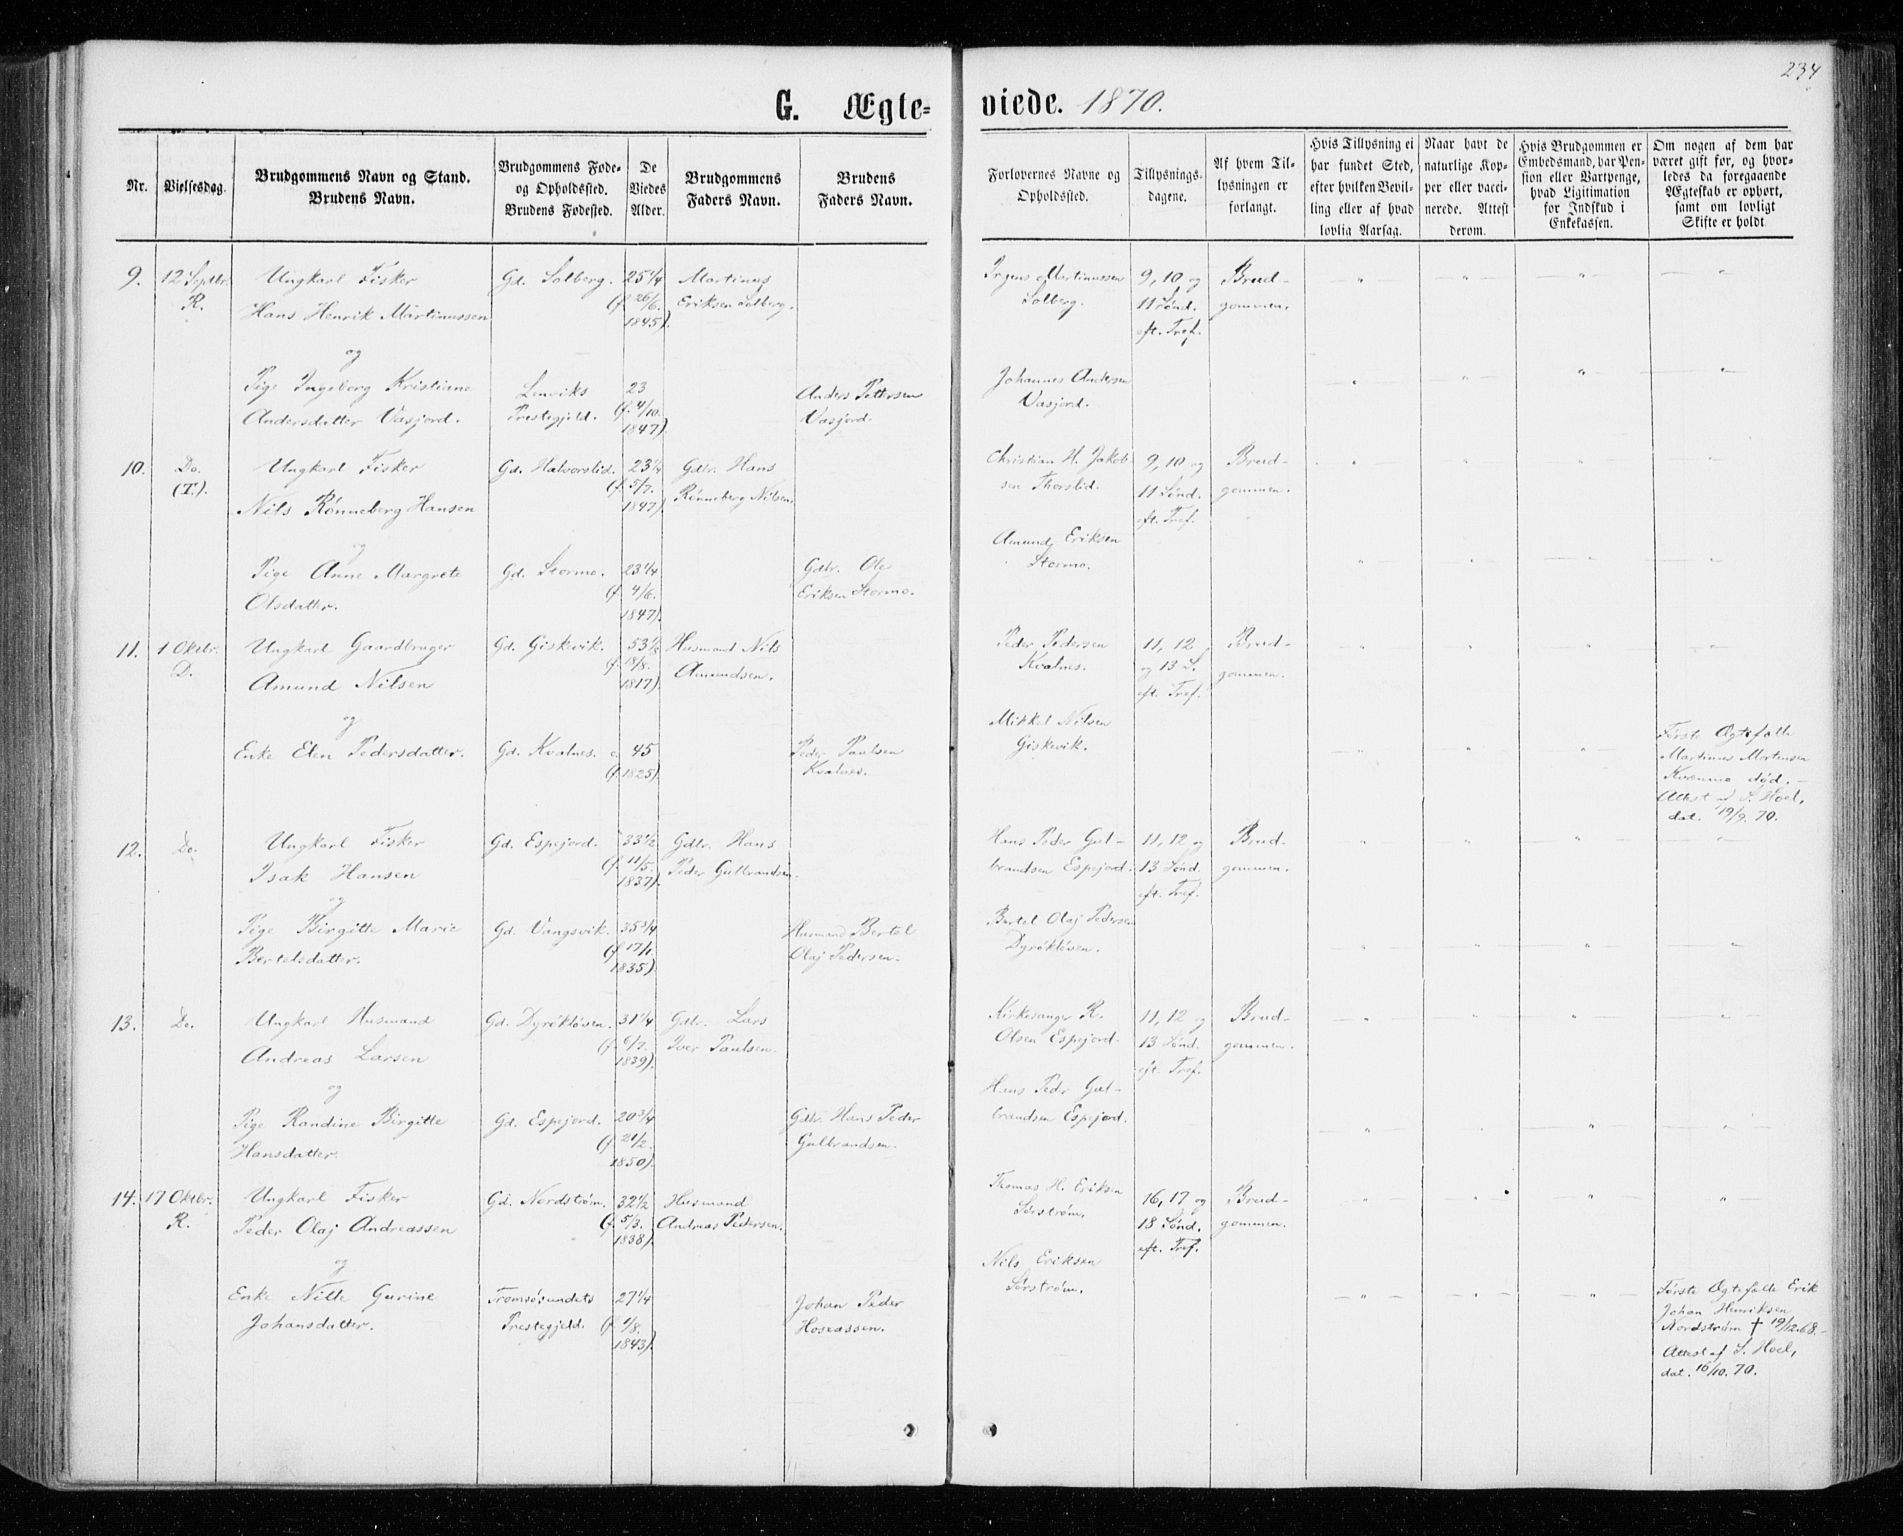 234
G. Ægte-
viede. 1870.
Nr.
Vielsesdag.
Brudgommens Navn og Stand.
Brudens Navn.
Brudgommens Føde-
og Opholdssted.
Brudens Fødested.
De
Viedes
Alder.
Brudgommens
Faders Navn.
Brudens
Faders Navn.
Forlovernes Navne og
Opholdssted.
Tillysnings-
dagene.
Af hvem Til-
lysningen er
forlangt.
Hvis Tillysning ei
har fundet Sted,
efter hvilken Bevil-
ling eller af hvad
lovlig Aarsag.
Naar havt de
naturlige Kop-
per eller vacci-
nerede. Attest
derom.
Hvis Brudgommen er
Embedsmand, har Pen-
sion eller Vartpenge,
hvad Ligitimation
for Indskud i
Enkekassen.
Om nogen af dem har
været gift før, og hvor-
ledes da foregaaende
Ægteskab er ophørt,
samt om lovligt
Skifte er holdt.
9.
12 Septbr.
R.
Ungkarl Fisker
Hans Henrik Martinussen
og
Pige Ingeborg Kristiane
Andersdatter Vasjord.
Gd. Solberg.
Lenviks
Prestegjeld.
25 1/4
(f. 26/6.
1845).
23
(f. 4/10.
1847).
Martinus
Eriksen Solberg.
Anders Pettersen
Vasjord
Jrgens Martinussen
Solberg.
Johannes Andersen
Vasjord.
9, 10 og
11 Sønd.
eft. Tref.
Brud-
gommen.
10.
Do.
(T.).
Ungkarl Fisker
Nils Rønneberg Hansen
og
Pige Anne Margrete
Olsdatter.
Gd. Halvorslid.
Gd. Stormo.
23 1/4
(f. 5/7.
1847).
23 1/4
(f. 4/6.
1847).
Gdbr. Hans
Rønneberg Nilsen.
Gdbr. Ole
Eriksen Stormo.
Christian H. Jakob-
sen Thorslid.
Amund Eriksen
Stormo.
9, 10 og
11 Sønd.
eft. Tref.
Brud-
gommen.
11.
1 Oktbr.
D.
Ungkarl Gaardbruger
Amund Nilsen
og
Enke Elen Pedersdatter.
Gd. Giskevik.
Gd. Kvalnes.
53 1/2
(f. 18/8.
1817).
c. 45
(f. 1825).
Husmand Nils
Amundsen.
Peder Paulsen
Kvalnes.
Peder Pedersen
Kvalnes.
Mikkel Nilsen
Giskevik.
11, 12
og 13 S.
eft. Tref.
Brud-
gommen.
Første Ægtefælle
Martinus Mortensen
død.
Attest af S. Hoel,
dat. 19/9. 70.
12.
Do.
Ungkarl Fisker
Isak Hansen
og
Pige Birgitte Marie
Bertelsdatter.
Gd. Espejord.
Gd. Vangsvik.
33 1/2
(f. 11/5.
1837).
35 3/4
(f. 17/1.
1835).
Gdbr. Hans
Peder Gulbrandsen.
Husmand Bertel
Olaj Pedersen.
Hans Peder Gul-
brandsen Espejord.
Bertel Olaj Pedersen
Dyrøkløven.
11, 12 og
13 Sønd.
eft. Tref.
Brud-
gommen.
13.
Do.
Ungkarl Husmand
Andreas Larsen
og
Pige Randine Birgitte
Hansdatter.
Gd. Dyrøkløven.
Gd. Espejord.
31 1/4
(f. 6/7.
1839).
20 3/4
(f. 21/2.
1850).
Gdbr. Lars
Iver Paulsen.
Gdbr. Hans Peder
Gulbrandsen.
Kirkesanger R.
Olsen Espejord.
Hans Peder Gul-
brandsen Espejord.
11, 12 og
13 Sønd.
eft. Tref.
Brud-
gommen.
14.
17 Oktbr.
R.
Ungkarl Fisker
Peder Olaj Andreassen
og
Enke Nille Gurine
Johansdatter.
Gd. Nordstrøm.
Tromsøsundets
Prestegjeld.
32 1/2
(f. 5/3.
1838).
27 1/4
(f. 1/8.
1843).
Husmand
Andreas Pedersen.
Johan Peder
Hoseassen.
Thomas H. Eriksen
Sørstrøm.
Nils Eriksen
Sørstrøm.
16, 17 og
18 Sønd.
eft. Tref.
Brud-
gommen.
Første Ægtefælle Erik
Johan Henriksen
Nordstrøm † 19/12.68.-
Attest af S. Hoel,
dat. 16/10. 70.